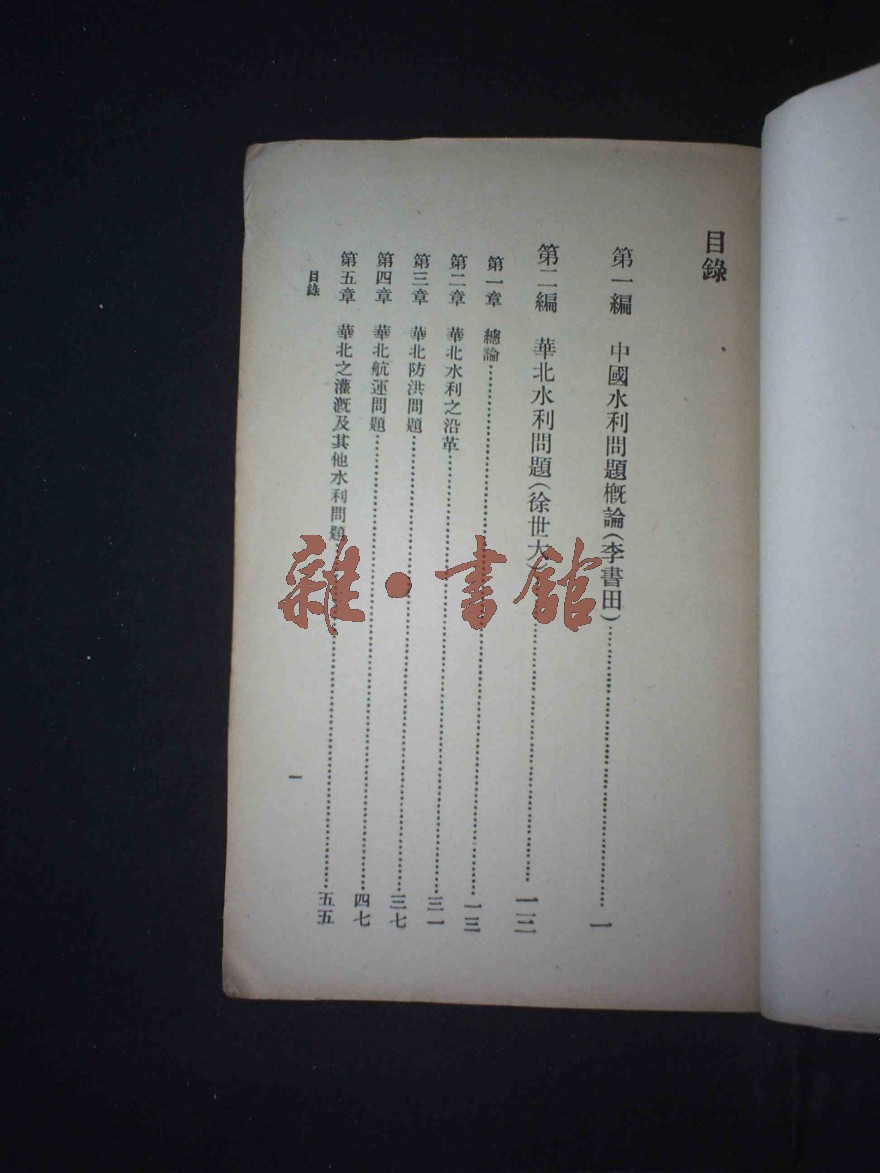 目錄
第一編　中國水利問題槪論(李書田)……一
第二編　華北水利問題(徐世大)……一三
第一章　總論……一三
第二章　華北水利之沿革……三一
第三章　華北防洪問題……三七
第四章　華北航運問題……四七
第五章　華北之灌漑及其他水利問題……五五
目錄
一
雜·書館